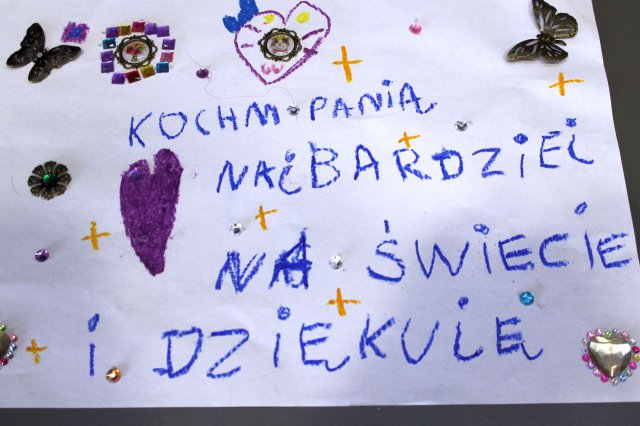 KOCHM PANIĄ
NAİBARDZİEİ
NA ŚWİECİE
İ DZİĘKUİĘ